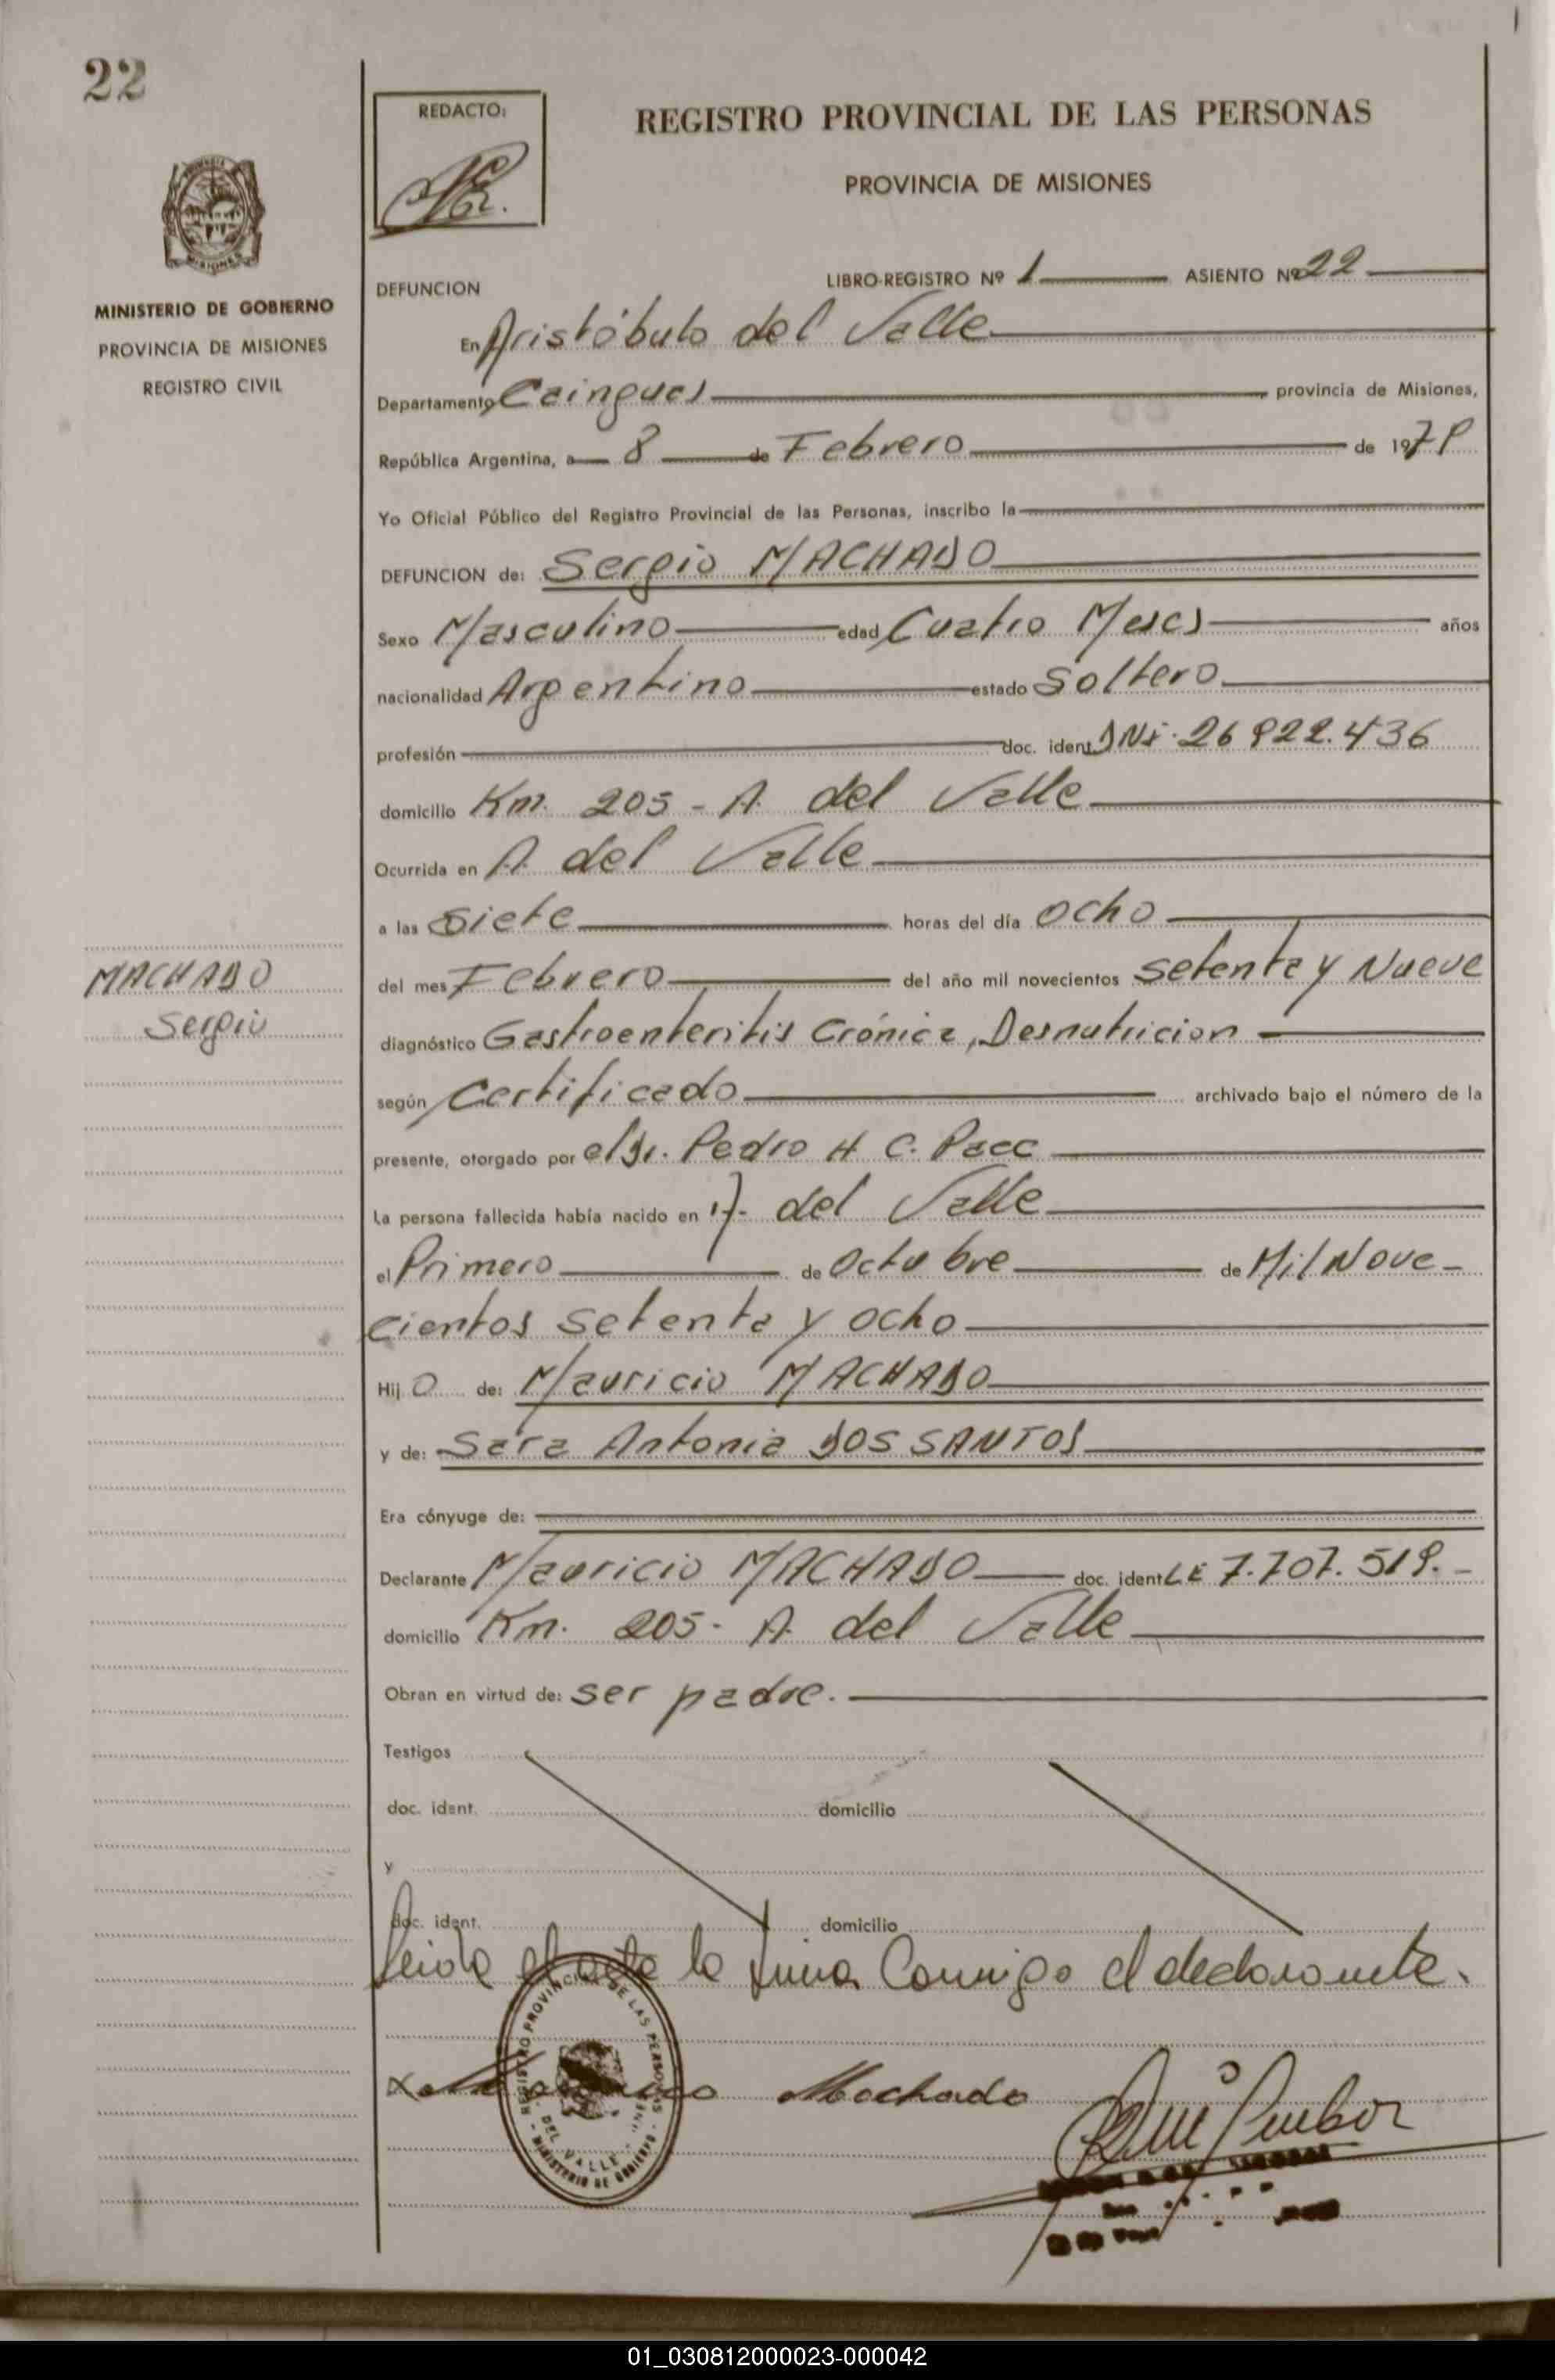 22
REDACTO:
REGISTRO PROVINCIAL DE LAS PERSONAS
PROVINCIA DE MISIONES
MISIONES
MINISTERIO DE GOBIERNO
PROVINCIA DE MISIONES
REGISTRO CIVIL
DEFUNCION
LIBRO-REGISTRO Nº 1 ASIENTO Nº 22
En Aristóbulo del Valle
Departamento Cainguas provincia de Misiones,
República Argentina, a 8 de Febrero de 1979
Yo Oficial Público del Registro Provincial de las Personas, inscribo la
DEFUNCION de: Sergio MACHADO
Sexo Masculino edad Cuatro Meses años
nacionalidad Argentino estado Soltero
profesión doc. ident. DNi. 26 922.436
domicilio Km. 205 - A. del Valle
Ocurrida en A. del Valle
a las Siete horas del día ocho
MACHADO
Sergio
del mes Febrero del año mil novecientos Setenta y Nueve
diagnóstico Gastroenteritis Crónica, Desnutricion
según Certificado archivado bajo el número de la
presente, otorgado por el Dr. Pedro H C.
La persona fallecida había nacido en A. del Valle
el Primero de Octubre de Mil Nove-
cientos setenta y ocho
Hij o de: Mauricio MACHADO
y de: Sara Antonia DOS SANTOS
Era cónyuge de:
Declarante Mauricio MACHADO doc. ident. LE 7.707.519.-
domicilio Km. 205- A. del Valle
Obran en virtud de: ser padre.
Testigos
doc. ident. domicilio
y
doc. ident. domicilio
Leida el acta la firma Conmigo el declarante.
REGISTRO PROVINCIAL DE LAS PERSONAS
DEL VALLE
MINISTERIO DE GOBIERNO
Machado